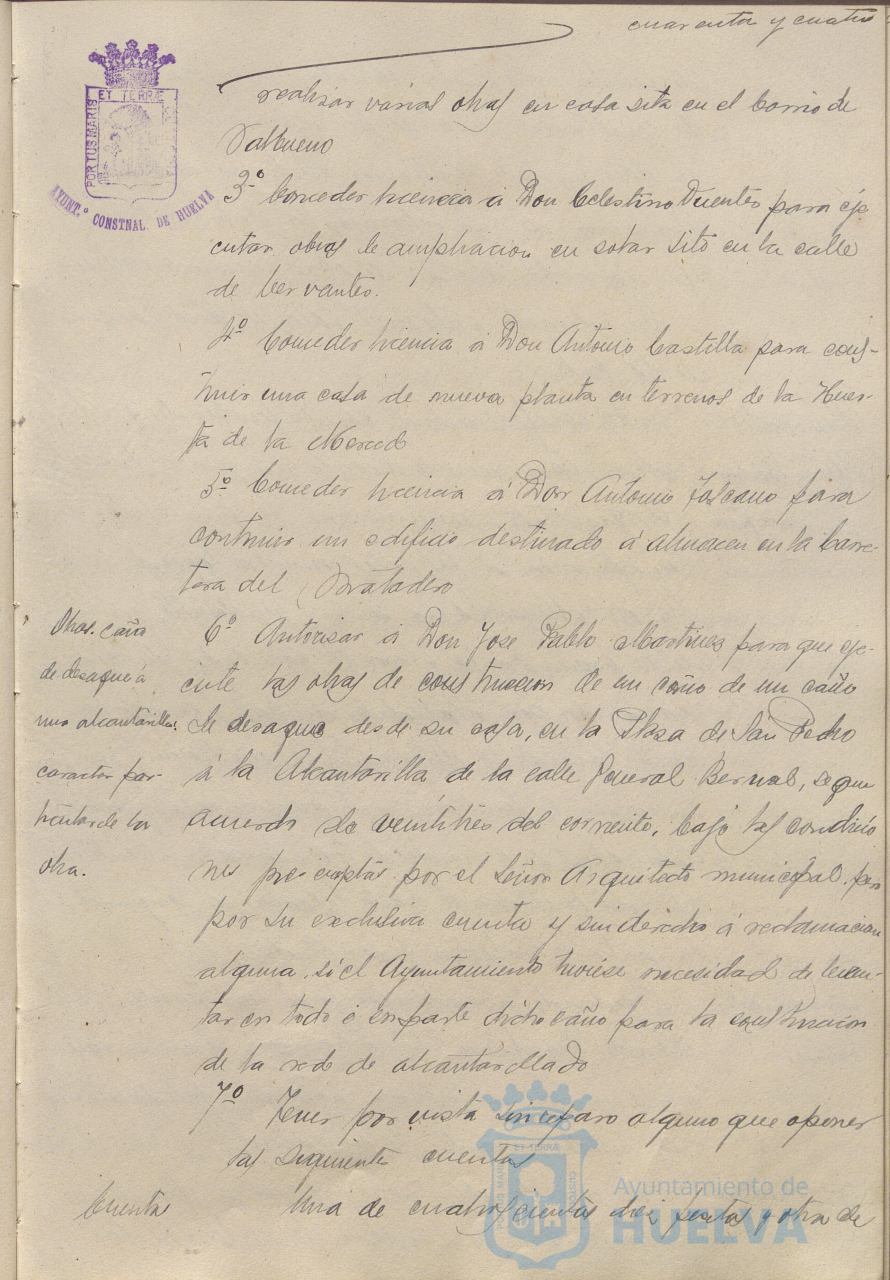 cuarenta y cuatro
ET TERRÆ
PORTUS MARIS
AYUNT.º CONSTNAL. DE HUELVA
realizar varias obras en casa sita en el barrio de
Valbueno
3º Conceder licencia á Don Celestino Fuentes para eje-
cutar obras de ampliacion en solar sito en la calle
de Cervantes.
4º Conceder licencia á Don Antonio Castilla para cons-
truir una casa de nueva planta en terrenos de la Huer-
ta de la Merced
5º Conceder licencia á Don Antonio Toscano para
contruir un edificio destinado á almacen en la Carre-
tera del Matadero
Obras. caño
de desague á
una alcantarilla:
caracter par-
ticular de la
obra.
6º Autorisar á Don Jose Pablo Martines para que eje-
cute las obras de construccion de un caño de un caño
de desague desde su casa, en la Plasa de San Pedro
á la Alcantarilla de la calle General Bernal, segun
acuerdo de veintitres del corriente, bajo las condicio
nes prescriptas por el Señor Arquitecto municipal, pero
por su exclusiva cuenta y sin derecho á reclamacion
alguna, si el Ayuntamiento tuviese necesidad de levan-
tar en todo ó en parte dicho caño para la construccion
de la red de alcantarillado
7º Tener por vista sin reparo alguno que oponer
las siguientes cuentas
Cuentas
Una de cuatrocientas dies pesetas y otra de
Ayuntamiento de
HUELVA